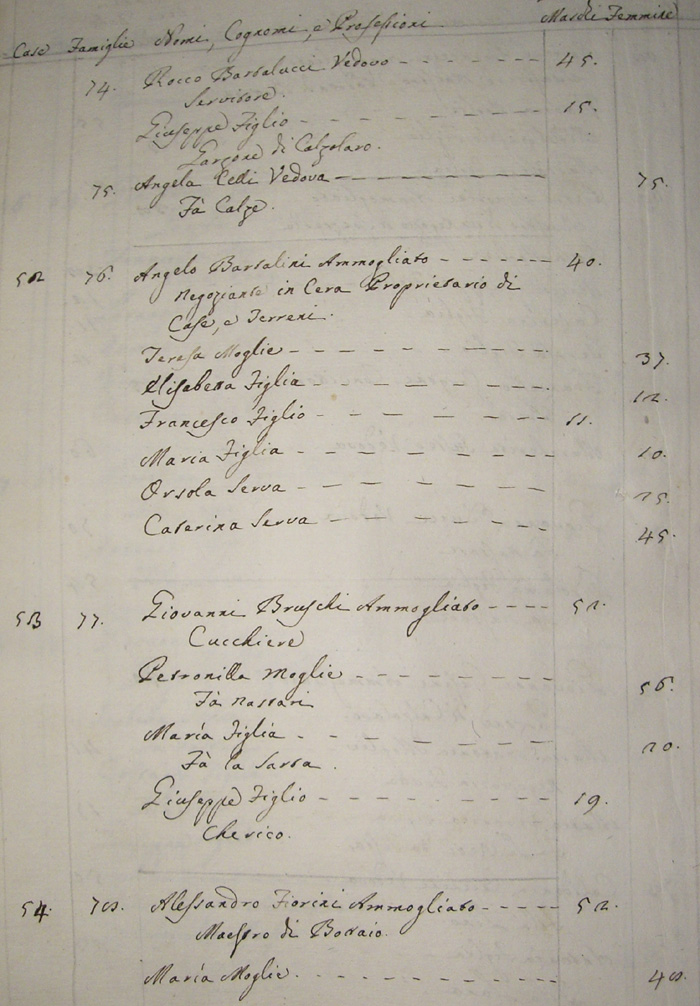 Case Famiglie Nomi, Cognomi, e Professioni Maschi Femmine
74. Rocco Bartalucci Vedovo 45.
Servitore.
Giuseppe Figlio 15.
Garzone di Calzolaro.
75. Angela Celli Vedova 75.
Fà Calze.
52 76. Angelo Bartalini Ammogliato 40.
Negoziante in Cera Proprietario di
Case, e Terreni.
Teresa Moglie 37.
Elisabetta Figlia 12.
Francesco Figlio 11.
Maria Figlia 10.
Orsola Serva 25.
Caterina Serva 45.
53 77. Giovanni Bruschi Ammogliato 52.
Cucchiere
Petronilla Moglie 56.
Fà Nastari
Maria Figlia 20.
Fà la Sarta.
Giuseppe Figlio 19.
Cherico.
54. 78. Alessandro Fiorini Ammogliato 52.
Maestro di
Maria Moglie. 48.